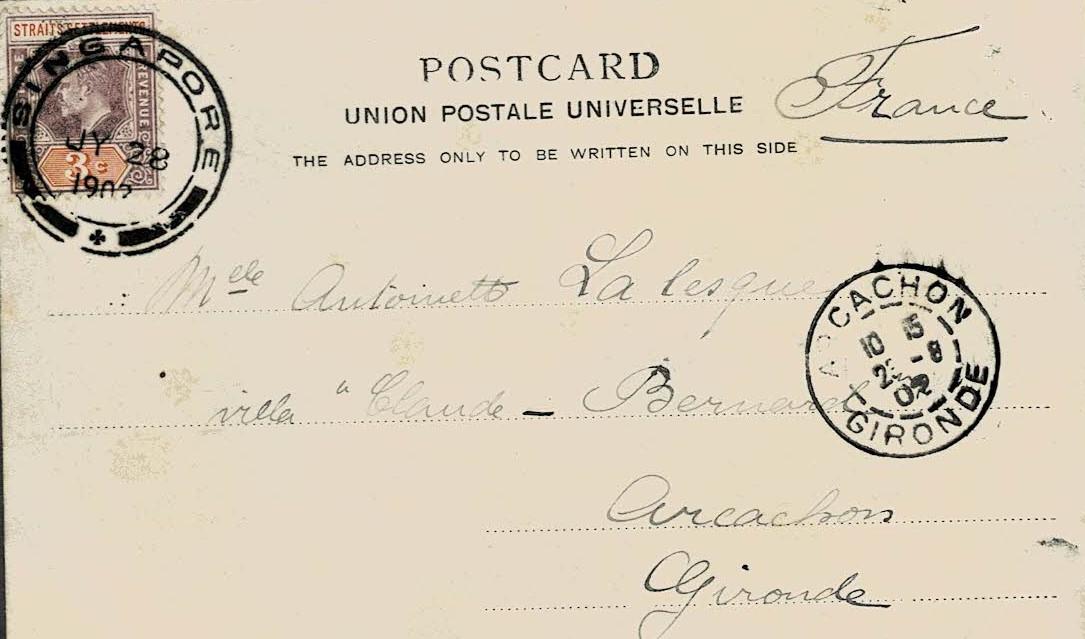 STRAITS SETTLEMENTS
REVENUE
3c
SINGAPORE
JY 28
1902
POSTCARD
UNION POSTALE UNIVERSELLE
THE ADDRESS ONLY TO BE WRITTEN ON THIS SIDE
France
Melle Antoinette Lalesque
villa "Claude - Bernard
Arcachon
Gironde
ARCACHON
10 15
2 -8
02
GIRONDE